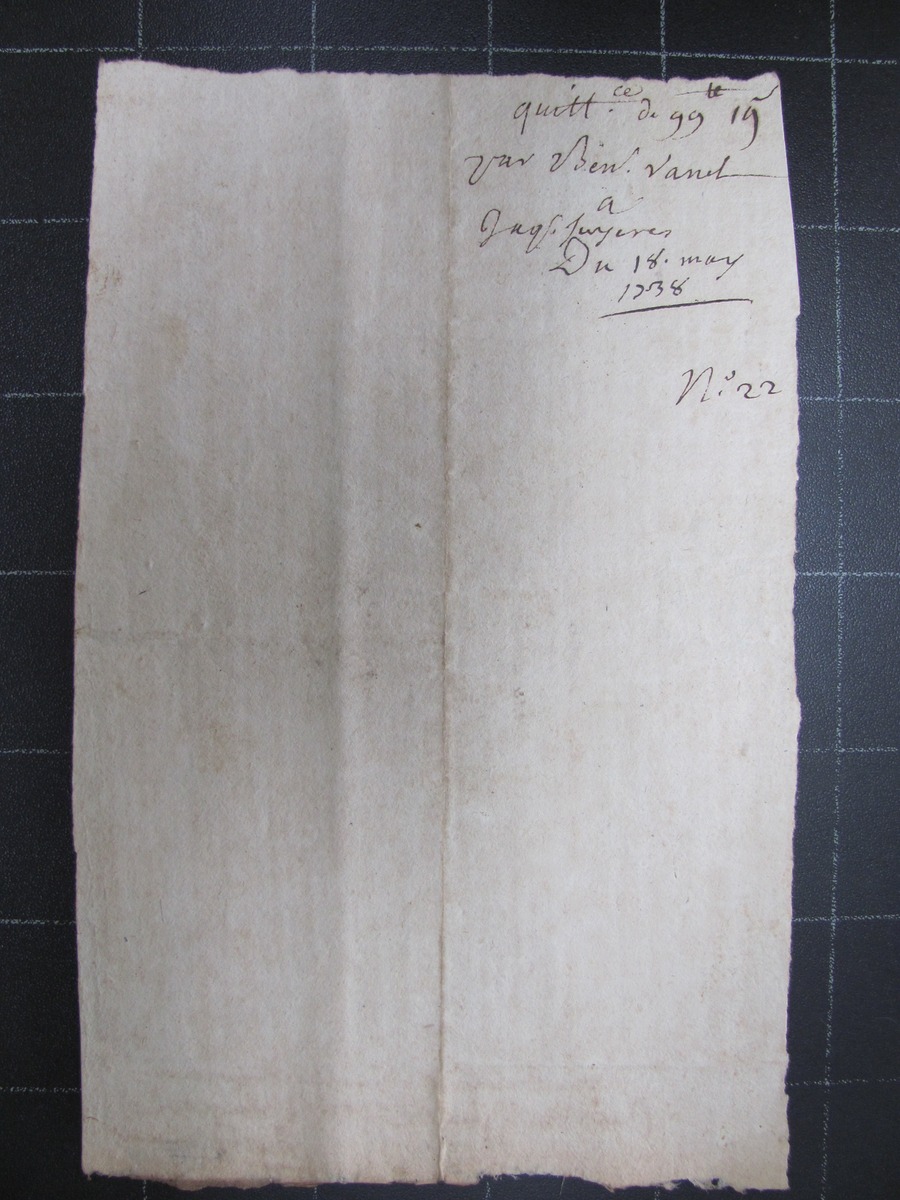 quitt.ce de 99 tt 19 s
par Ben. Vanel
a
Jaqs. Suyeres
Du 18. may
1738
N.o 22